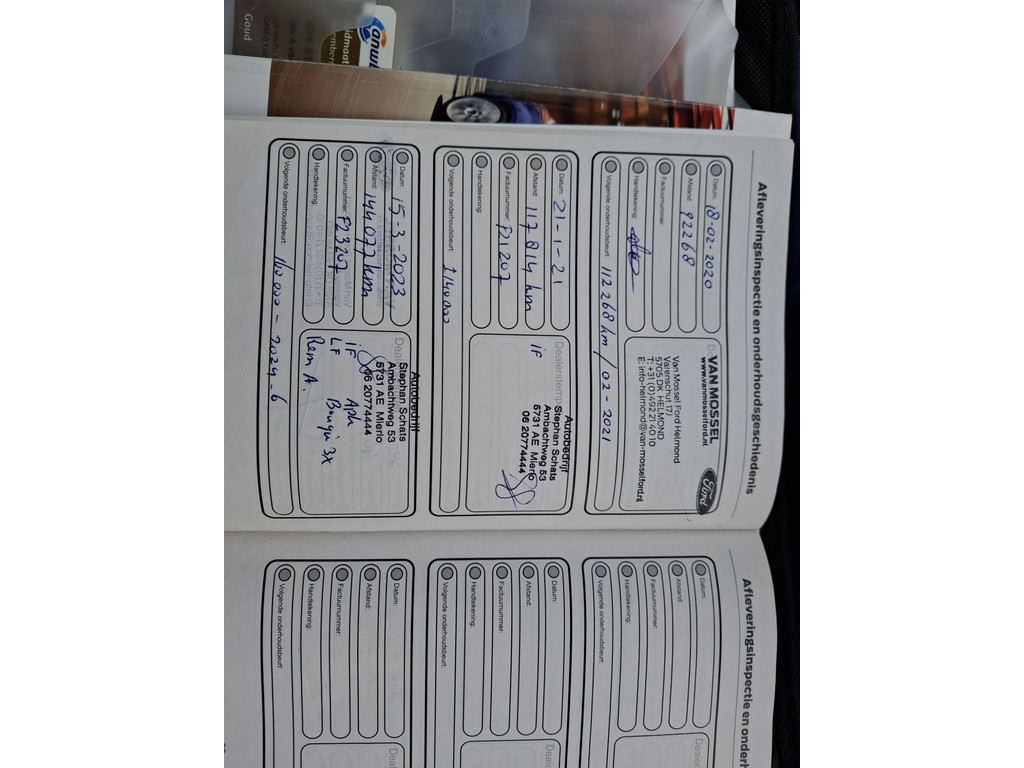 Goud
anwb
Afleveringsinspectie en onderhoudsgeschiedenis
Datum: 18-02-2020
Afstand: 92268
Factuurnummer:
Handtekening:
Volgende onderhoudsbeurt: 112 268 km / 02-2021
VAN MOSSEL
www.vanmosselford.nl
Van Mossel Ford Helmond
Varenschut 17J
5705 DK HELMOND
T: +31 (0)492 21 40 10
E: info-helmond@van-mosselford.nl
Ford
Datum: 21-1-21
Afstand: 117 814 km
Factuurnummer: F21207
Handtekening:
Volgende onderhoudsbeurt: 140.000
Dealerstemp
Autobedrijf
Stephan Schats
Ambachtweg 53
5731 AE Mierlo
06 20774444
IF
Datum: 15-3-2023
Afstand: 144.077 km
Factuurnummer: F23207
Handtekening:
Volgende onderhoudsbeurt: 160.000 - 2024-6
Dealer
Autobedrijf
Stephan Schats
Ambachtweg 53
5731 AE Mierlo
06 20774444
IF
LF
Rem A.
Bougi 3x
Afleveringsinspectie en onderh
Datum:
Afstand:
Factuurnummer:
Handtekening:
Volgende onderhoudsbeurt:
Dealer
Datum:
Afstand:
Factuurnummer:
Handtekening:
Volgende onderhoudsbeurt:
Deal
Datum:
Afstand:
Factuurnummer:
Handtekening:
Volgende onderhoudsbeurt:
Deal